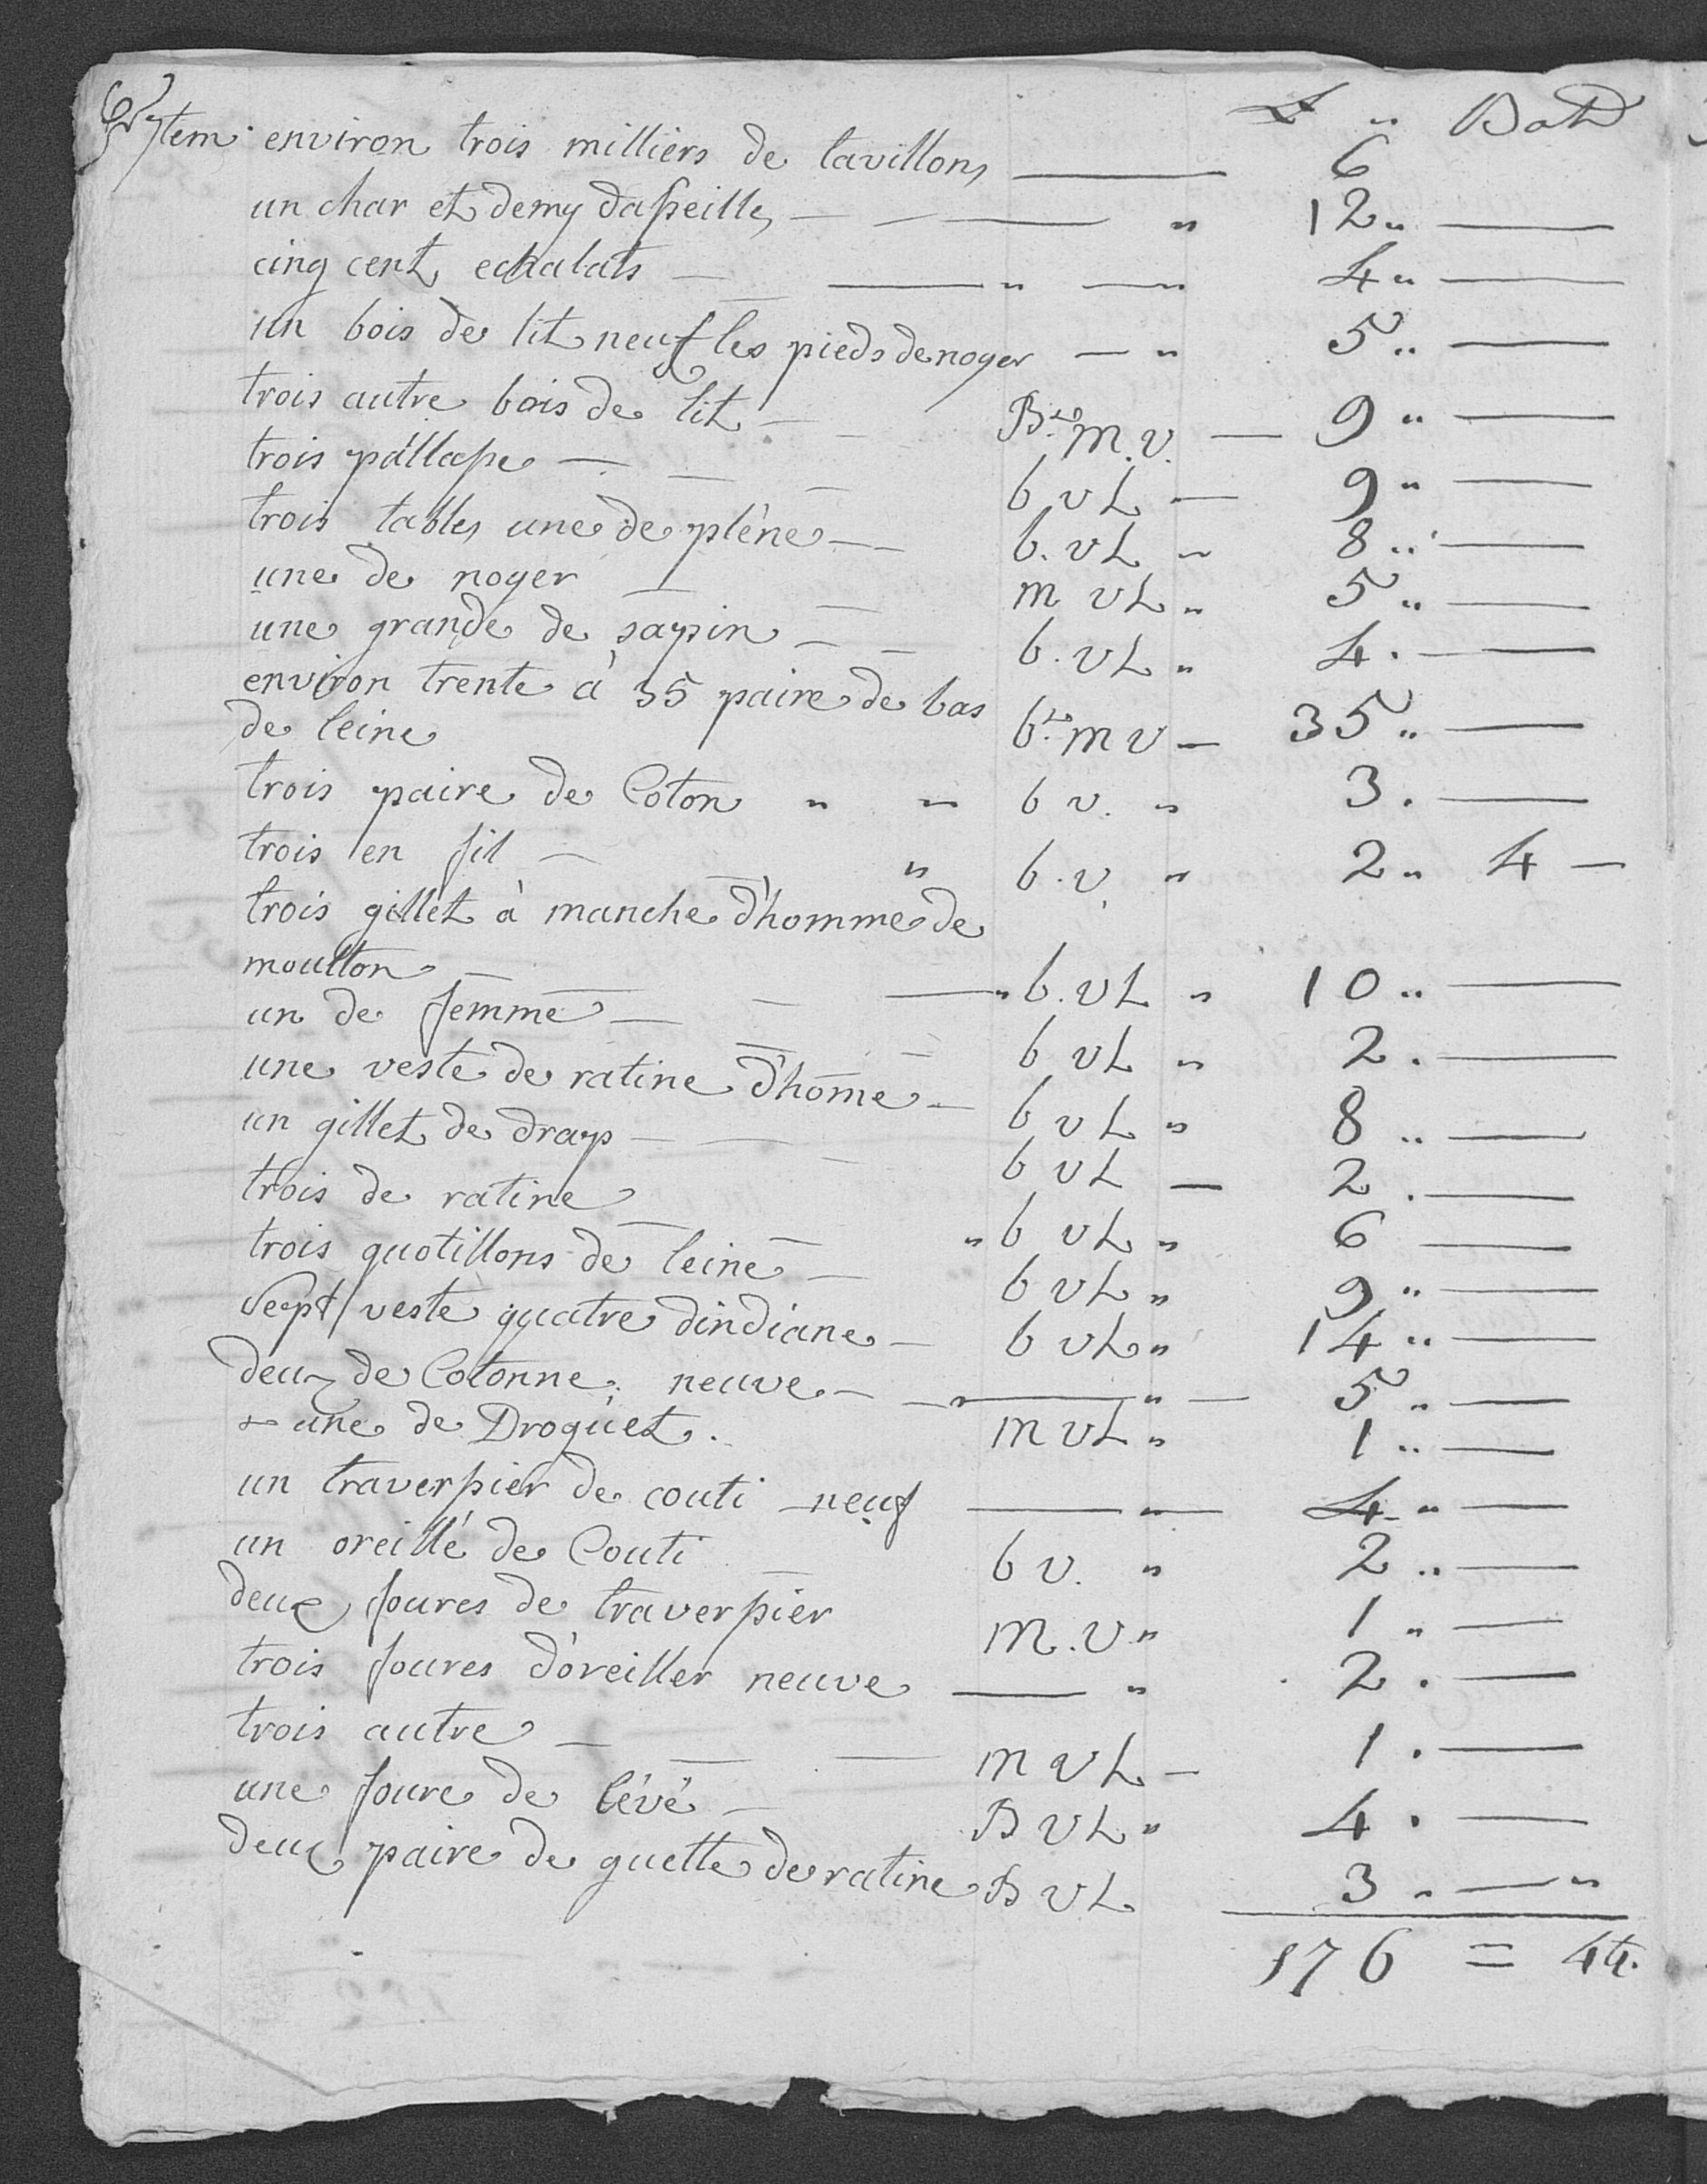 L „ Batz
Item environ trois milliers de tavillons — 6
un char et demy dasseilles — „ 12 „ —
cinq cent echalats — „ — „ 4 „ —
un bois de lit neuf les pieds de noyer — „ 5 „ —
trois autre bois de lit — Bts m. v. — 9 „ —
trois pallasse — b vL — 9 „ —
trois tables une de pléne — b. vL „ 8 „ —
une de noyer — m vL „ 5 „ —
une grande de sapin — b. vL „ 4 . —
environ trente à 35 paire de bas
de leine bts m v — 35 „ —
trois paire de Coton „ „ b v. „ 3 . —
trois en fil — „ b. v. „ 2 „ 4 —
trois gillet à manche d'homme de
moutton — „ b. vL „ 10 „ —
un de femme — b vL „ 2 . —
une veste de ratine d'hôme — b vL „ 8 „ —
un gillet de drap — b vL — 2 . —
trois de ratine — „ b vL „ 6 —
trois quotillons de leine — b vL „ 9 „ —
Sept veste quatre dindiane — b vL „ 14 „ —
deux de Cotonne neuve — „ — 5 „ —
& une de Droguet . m vL „ 1 „ —
un traverssier de couti neuf — „ — 4 „ —
un oreillé de Couti — b v. „ 2 „ —
deux foures de traverssier m. v „ 1 „ —
trois foures d'oreiller neuve — „ 2 . —
trois autre — m vL — 1 . —
une foure de lévé — B vL „ 4 . —
deux paire de guette de ratine B vL 3 „ — „
176 = 44.